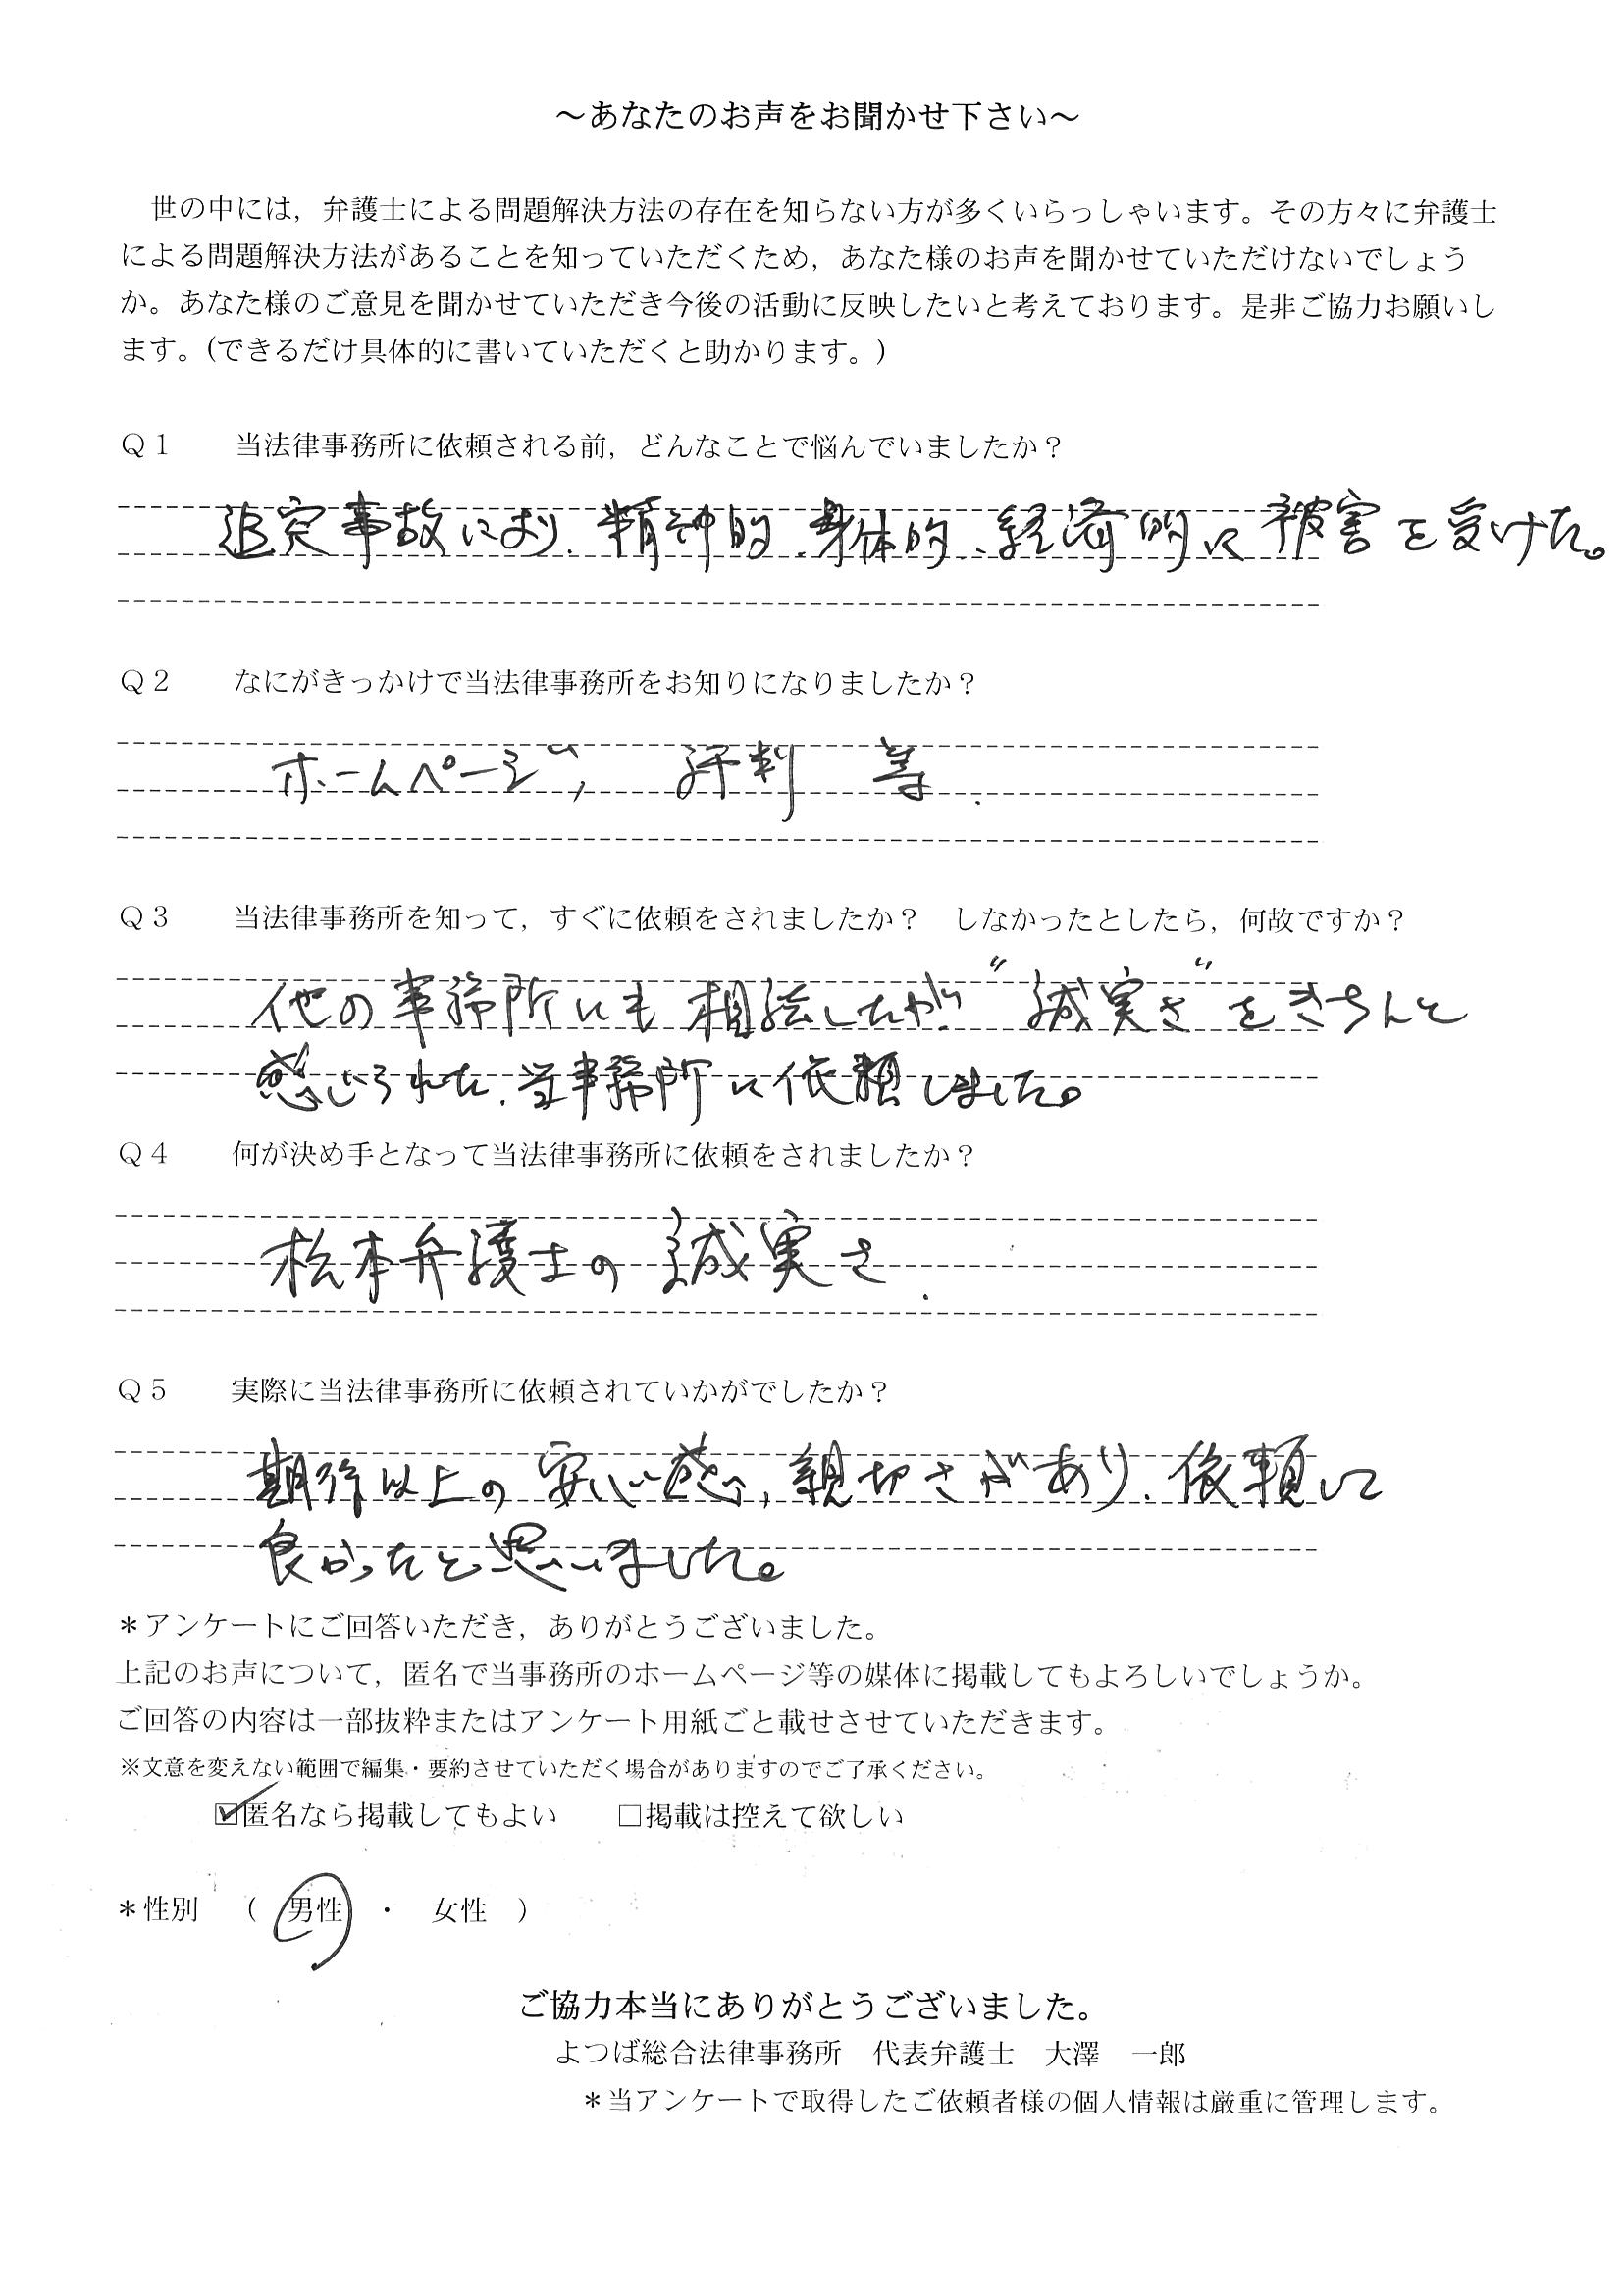 ～あなたのお声をお聞かせ下さい～
世の中には，弁護士による問題解決方法の存在を知らない方が多くいらっしゃいます。その方々に弁護士
による問題解決方法があることを知っていただくため，あなた様のお声を聞かせていただけないでしょう
か。あなた様のご意見を聞かせていただき今後の活動に反映したいと考えております。是非ご協力お願いし
ます。（できるだけ具体的に書いていただくと助かります。）
Ｑ１　当法律事務所に依頼される前，どんなことで悩んでいましたか？
追突事故により、精神的、身体的、経済的に被害を受けた。
Ｑ２　なにがきっかけで当法律事務所をお知りになりましたか？
ホームページ，評判　等．
Ｑ３　当法律事務所を知って，すぐに依頼をされましたか？　しなかったとしたら，何故ですか？
他の事務所にも相談したが、“誠実さ”をきちんと
感じられた、当事務所に依頼しました。
Ｑ４　何が決め手となって当法律事務所に依頼をされましたか？
松本弁護士の誠実さ．
Ｑ５　実際に当法律事務所に依頼されていかがでしたか？
期待以上の安心感，親切さがあり、依頼して
良かったと思いました。
＊アンケートにご回答いただき，ありがとうございました。
上記のお声について，匿名で当事務所のホームページ等の媒体に掲載してもよろしいでしょうか。
ご回答の内容は一部抜粋またはアンケート用紙ごと載せさせていただきます。
※文意を変えない範囲で編集・要約させていただく場合がありますのでご了承ください。
☑匿名なら掲載してもよい　□掲載は控えて欲しい
＊性別　（　男性　・　女性　）
ご協力本当にありがとうございました。
よつば総合法律事務所　代表弁護士　大澤　一郎
＊当アンケートで取得したご依頼者様の個人情報は厳重に管理します。